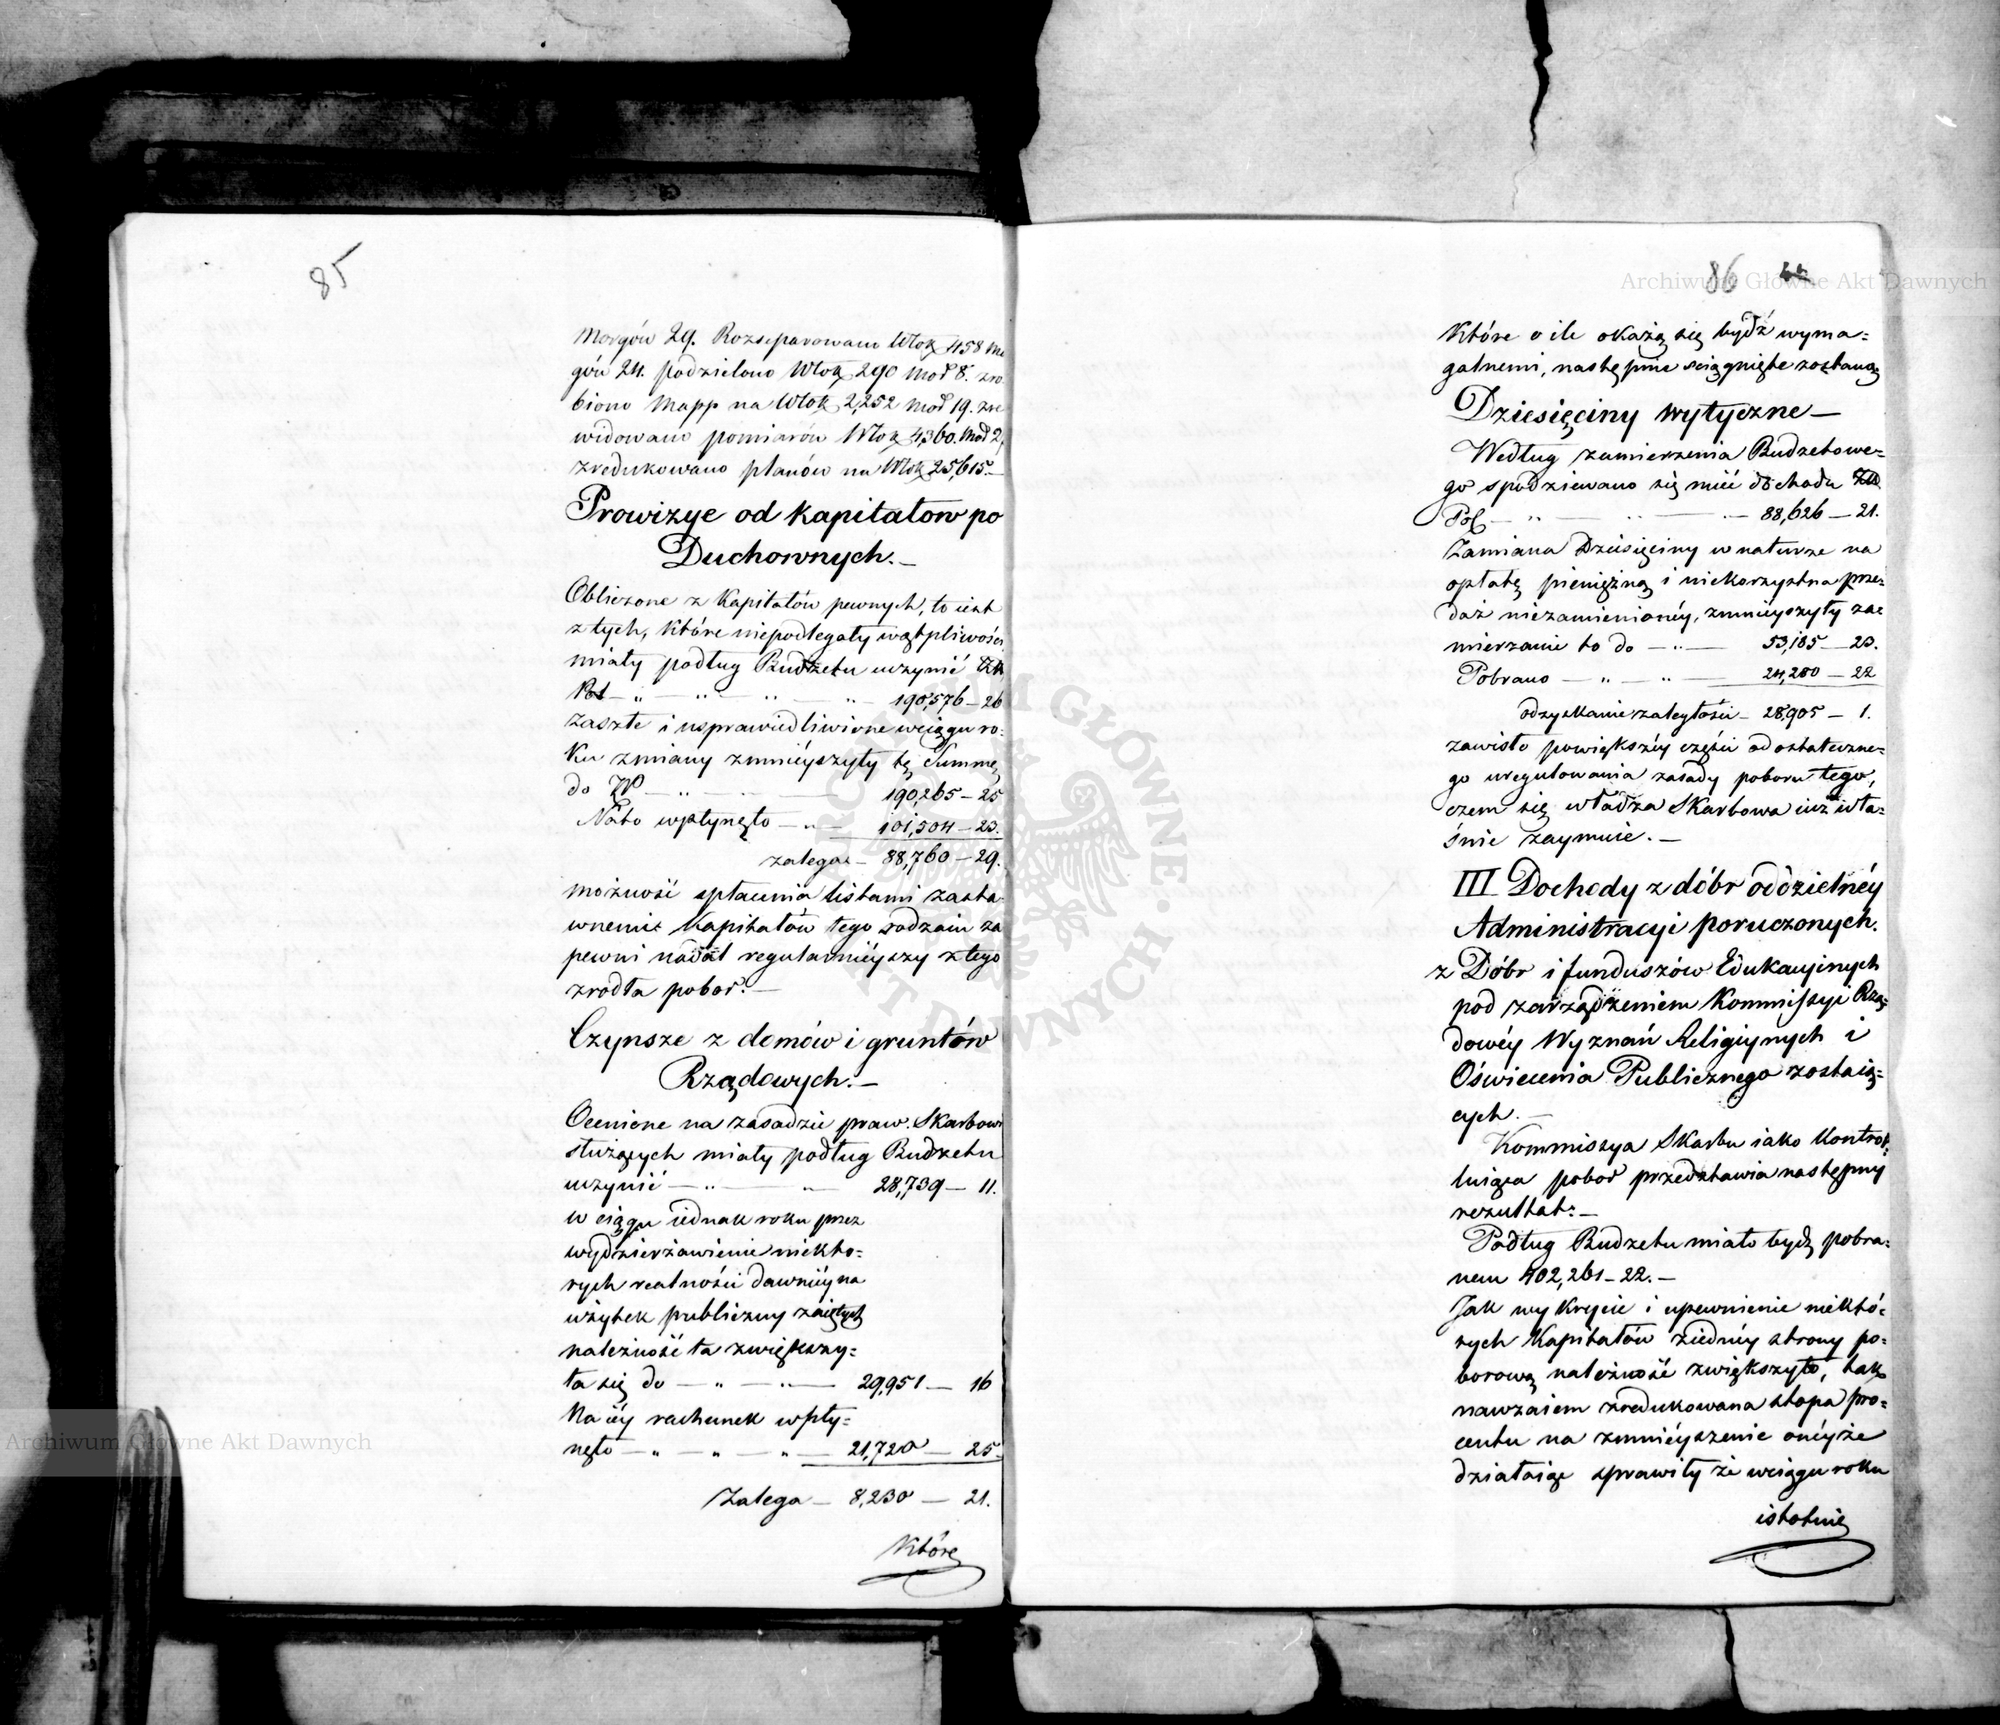 85
Morgów 29. Rozseparowano Włók 458 Mo
gów 24. podzielono Włok 290 Mor 8. zro
biono Mapp na Włok 2,252 Mor 19. zre
widowano pomiarów Włok 4,360. Mor 2,
zredukowano planów na Włok 25,615.—
Prowizye od kapitałow po
Duchownych.—
Obliczone z Kapitałów pewnych, to iest
z tych, które niepodlegały wątpliwości
miały podług Budżetu uczynić Złt
Pol — „ — „ — „ — „ 190,576 — 26
zaszłe i usprawiedliwione wciągu ro-
ku zmiany zmnieyszyły tę Summę
do ZP — „ — 190,265 — 25
Nato wpłynęło — „ — 101,504 — 23.
zalega — 88,760 — 29.
możność spłacenia listami zasta-
wnemi kapitałów tego rodzaiu za
pewni nadal regularnieyszy z tego
zrodła pobor.—
Czynsze z domów i gruntów
Rządowych.—
Ocenione na zasadzie praw Skarbowi
służących miały podług Budżetu
uczynić — „ — „ 28,739 — 11.
w ciągu iednak roku przez
wydzierżawienie niekto=
rych realności dawniéy na
użytek publiczny zaiętych
należność ta zwiększy=
ła się do — „ — „ — 29,951 — 16
Na iéy rachunek wpły=
nęło — „ — „ — „ — 21,720 — 25.
Zalega — 8,230 — 21.
Które
86
które o ile okażą się bydź wyma=
galnemi, następnie sciągnięte zostaną
Dziesięciny wytyczne —
Według zamierzenia Budżetowe=
go spodziewano się mieć dochodu Złt
Pol — „ — „ — 88,626 — 21.
Zamiana Dziesięciny w naturze na
opłatę pieniężną i niekorzystna prze=
daż niezamienionéy, zmnieyszyły za=
mierzanie to do — „ — 53,185 — 23.
Pobrano — „ — „ — 24,280 — 22
odzyskanie zaległości — 28,905 — 1.
zawisło powiększéy części od ostateczne=
go uregulowania zasady poboru tego,
czem się władza Skarbowa iuż wła=
śnie zaymuie.—
III Dochody z dóbr oddzielnéy
Administracyi poruczonych.
z Dóbr i funduszów Edukacyinych
pod zarządzeniem Kommissyi Rzą=
dowéy Wyznań Religiynych i
Oświecenia Publicznego zostaią=
cych.—
Kommissya Skarbu iako kontrol=
luiąca pobor przedstawia następny
rezultat:—
Podług Budżetu miało bydź pobra=
nem 402,261 — 22.—
Jak wykrycie i upewnienie niektó=
rych Kapitałów ziednéy strony po=
borową należność zwiększyło, tak
nawzaiem zredukowana stopa pro=
centu na zmnieyszenie onéyże
działaiąc sprawiły że wciągu roku
istotnie
Archiwum Główne Akt Dawnych
Archiwum Główne Akt Dawnych
ARCHIWUM GŁÓWNE AKT DAWNYCH